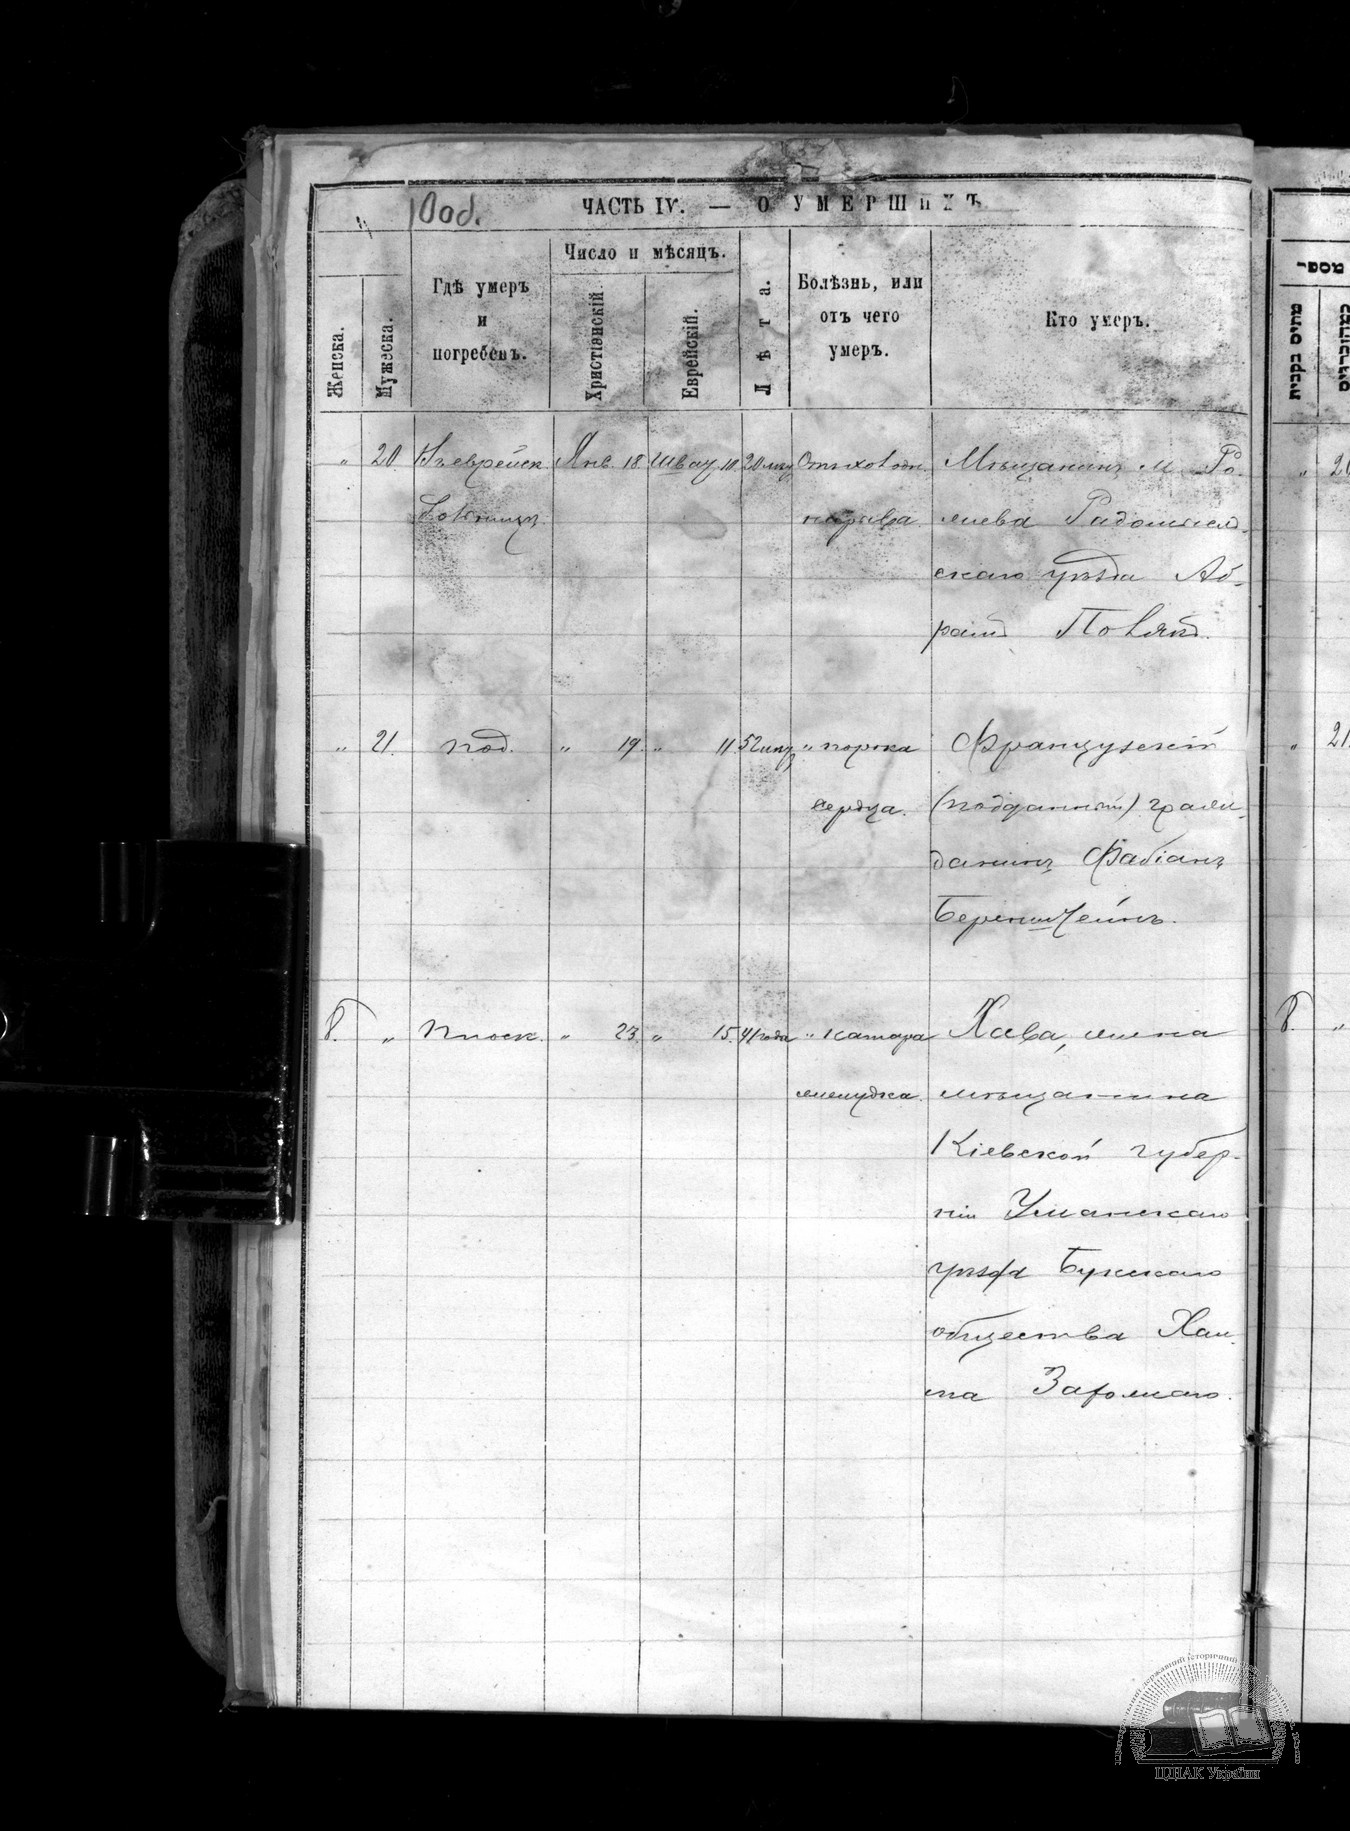 100об.
ЧАСТЬ IV. — О УМЕРШИХЪ
Женска.
Мужеска.
Гдѣ умеръ
и
погребенъ.
Число и мѣсяцъ.
Христіянскій.
Еврейскій.
Лѣта.
Болѣзнь, или
отъ чего
умеръ.
Кто умеръ.
מספר
" 20. Въ еврейск. Янв. 18 Шват 10. 20 лѣт От
больницѣ
нарыва
Мѣщанинъ м. Ро-
Радомысл-
скаго уѣзда Аб-
рамъ
" 21. под. " 19. " 11. 52 " порока
сердца.
Французскій
(подданный) граж-
данинъ Фабіанъ
Беренштейнъ.
8. " Плоск. " 23. " 15. 41 года " катара
желудка.
Хава, жена
мѣщанина
Кіевской губер-
ніи Уманскаго
уѣзда Букскаго
общества Хаи-
ма
" 20
" 21.
8. "
ЦДІАК України